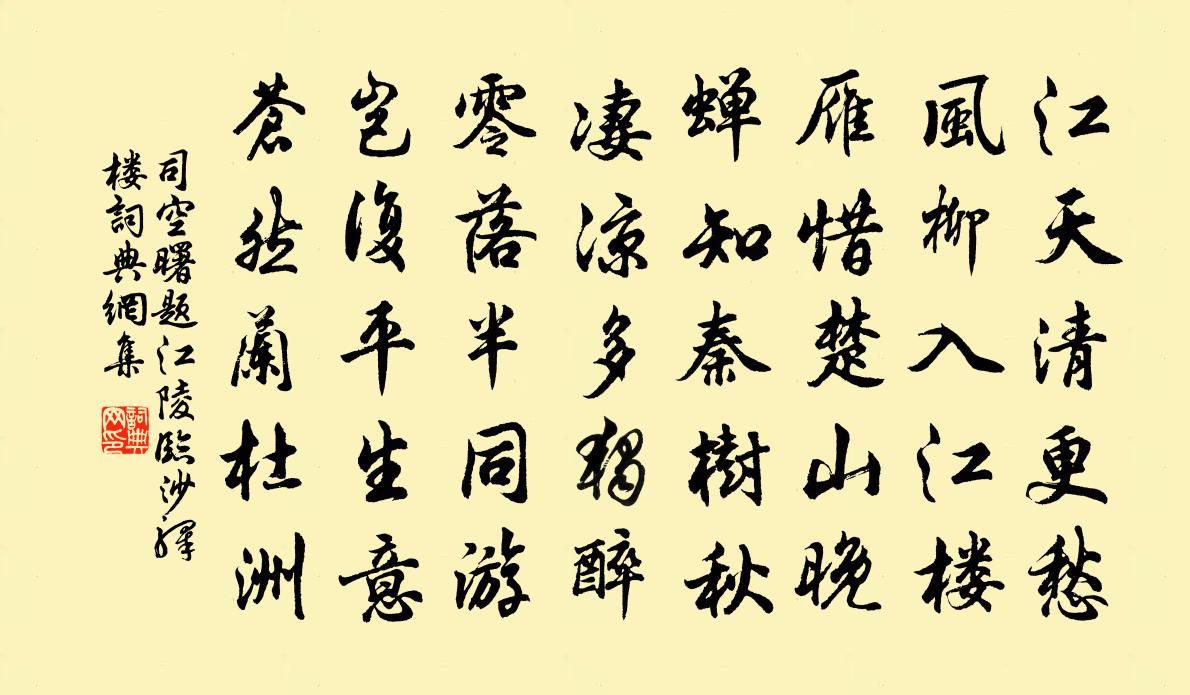 江天清更愁
風柳入江楼
雁惜楚山晚
蝉知秦樹秋
凄涼多獨醉
零落半同游
岂復平生意
蒼然蘭杜洲
司空曙题江陵臨沙驛
楼詞典網集
詞典网印